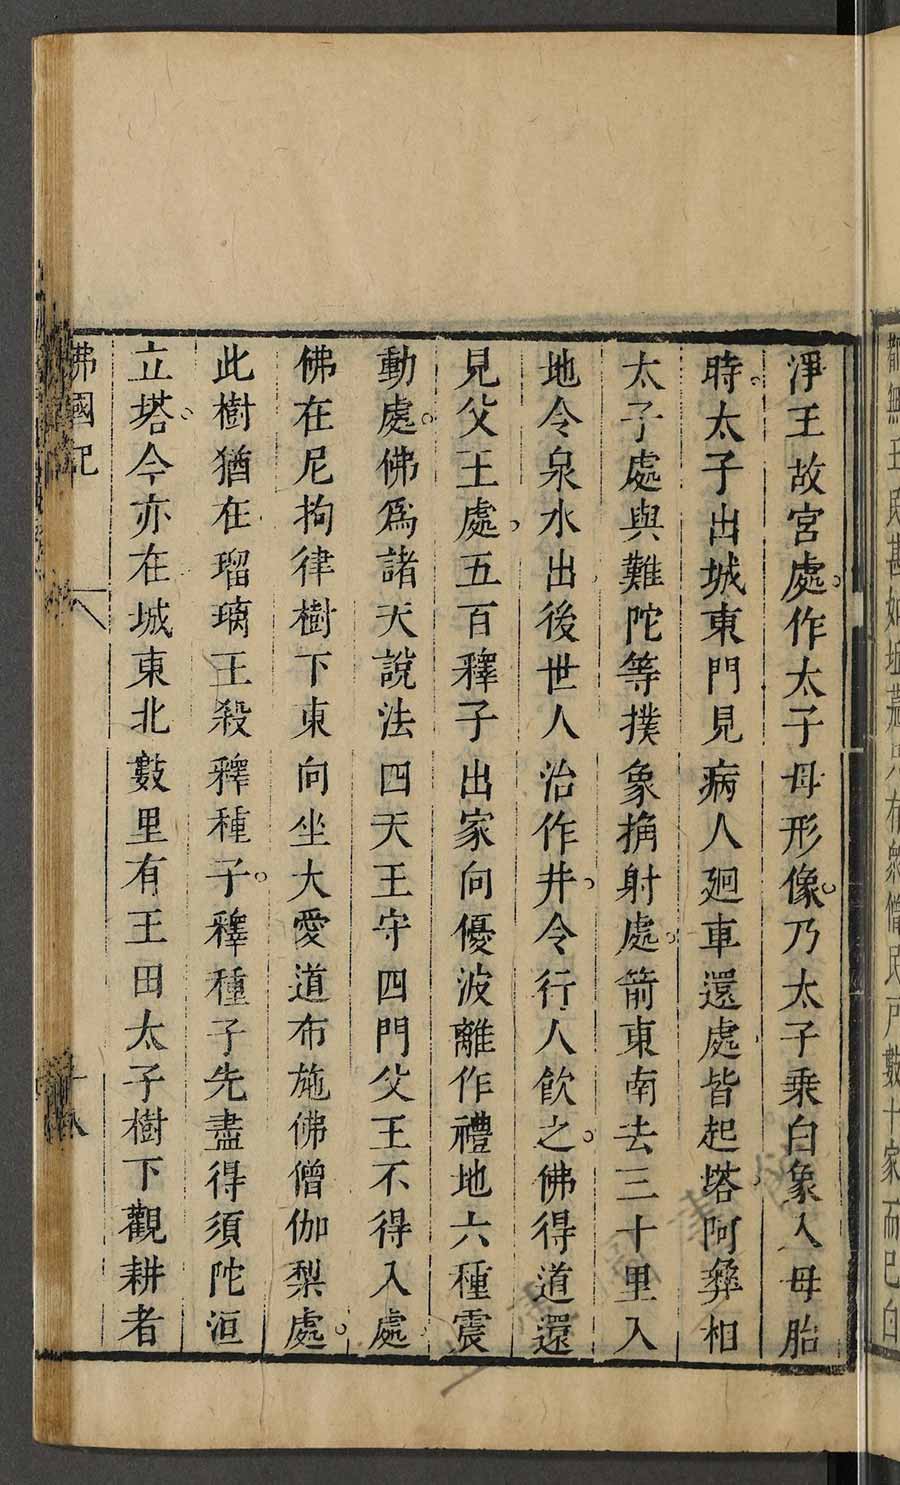 淨王故宮處作太子母形像乃太子乘白象入母胎
時太子出城東門見病人廻車還處皆起塔阿彝相
太子處與難陀等撲象捔射處箭東南去三十里入
地令泉水出後世人治作井令行人飲之佛得道還
見父王處五百釋子出家向優波離作禮地六種震
動處佛爲諸天說法四天王守四門父王不得入處
佛在尼拘律樹下東向坐大愛道布施佛僧伽梨處
此樹猶在瑠璃王殺釋種子釋種子先盡得須陀洹
立塔今亦在城東北數里有王田太子樹下觀耕者
佛國記
十八